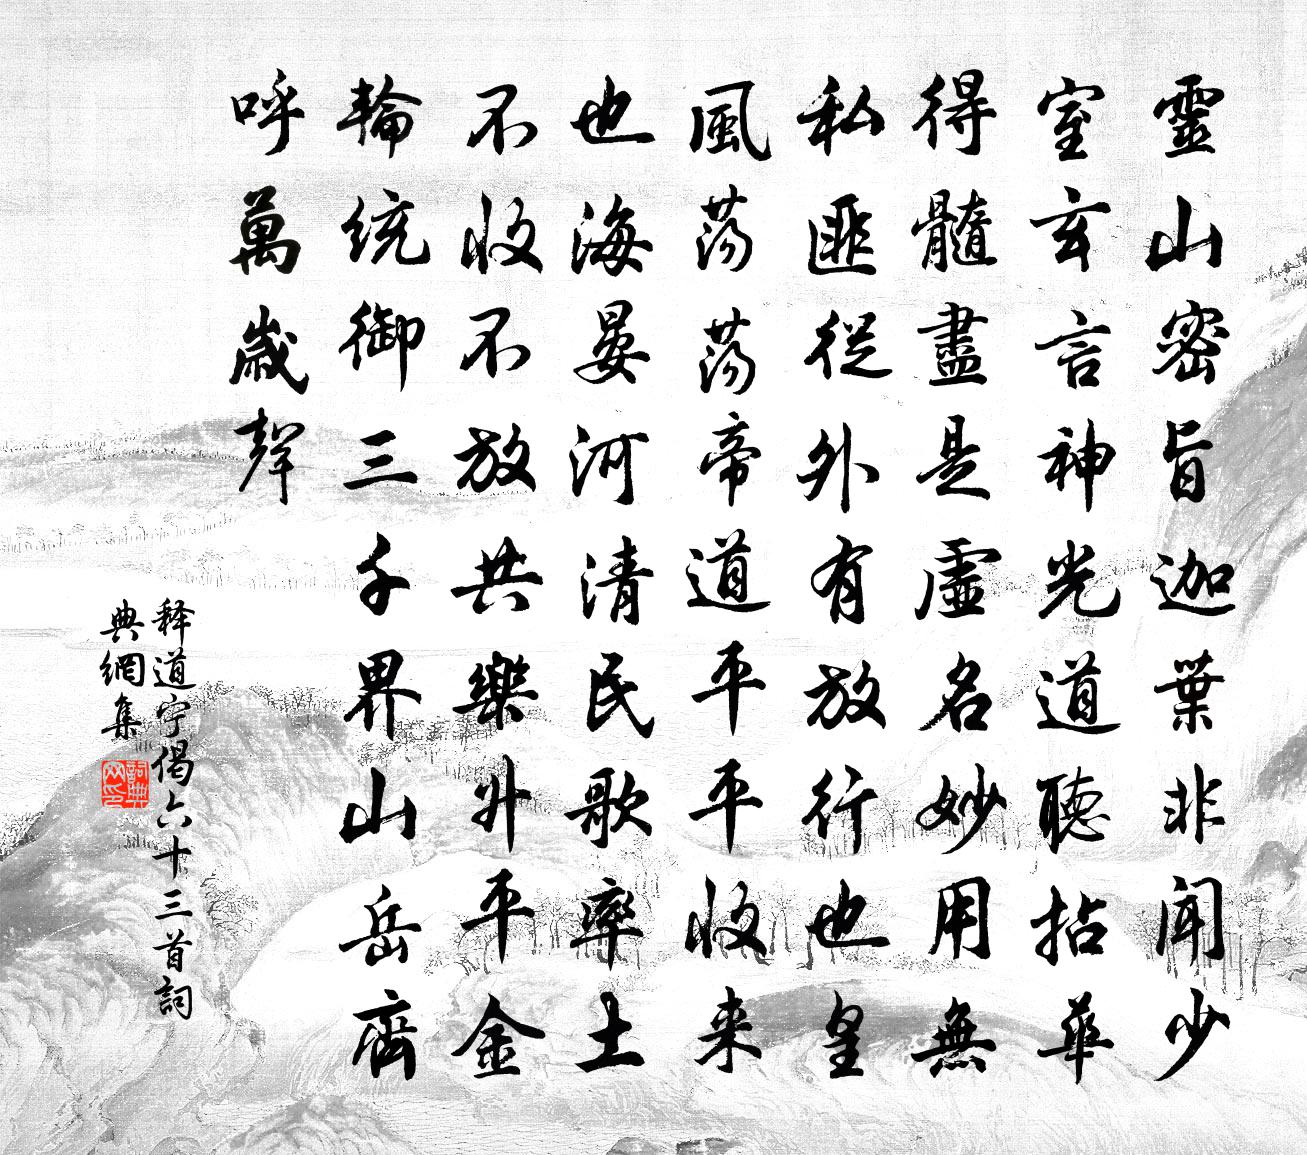 靈山密旨迦葉非聞少
室玄言神光道聽拈華
得髓盡是虛名妙用無
私匪從外有放行也皇
風蕩蕩帝道平平收来
也海晏河清民歌率土
不收不放共樂升平金
輪統御三千界山岳齊
呼萬歲聲
释道宁偈六十三首詞
典網集
詞典
网印